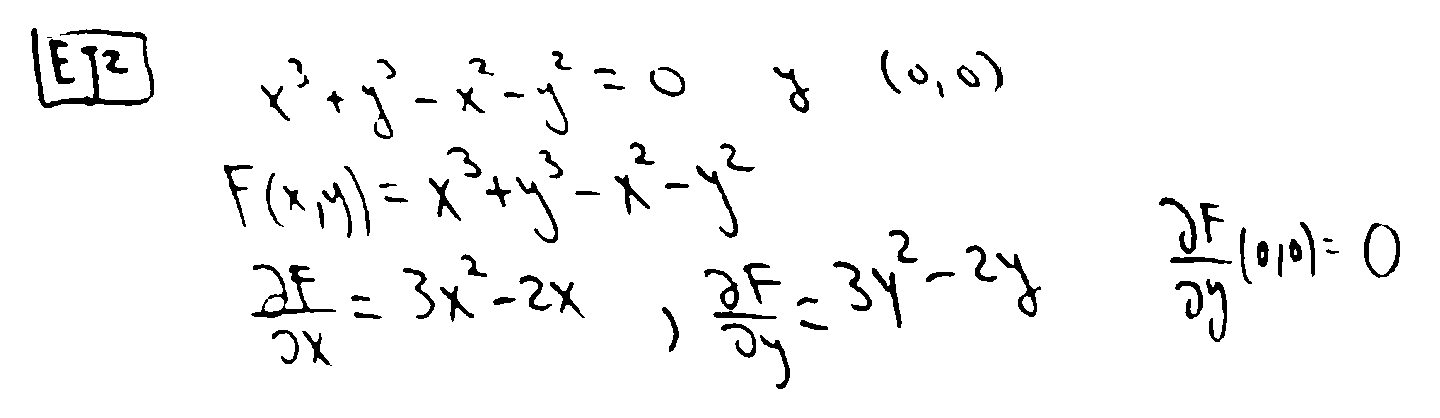 EJ2 x³+y³-x²-y²=0 y (0,0)
F(x,y)=x³+y³-x²-y²
∂F/∂x = 3x²-2x , ∂F/∂y = 3y²-2y ∂F/∂y (0,0)=0